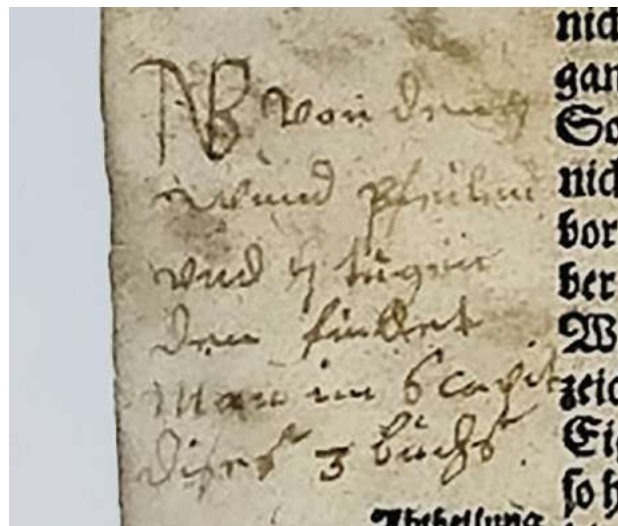 NB von den
wund pfeilen
vnd tugen
den findet
man im 6 capit
dises 3 büchs.
nic
gan
So
nic
bor
ber
W
zeic
Ei
so h
Abtheilung